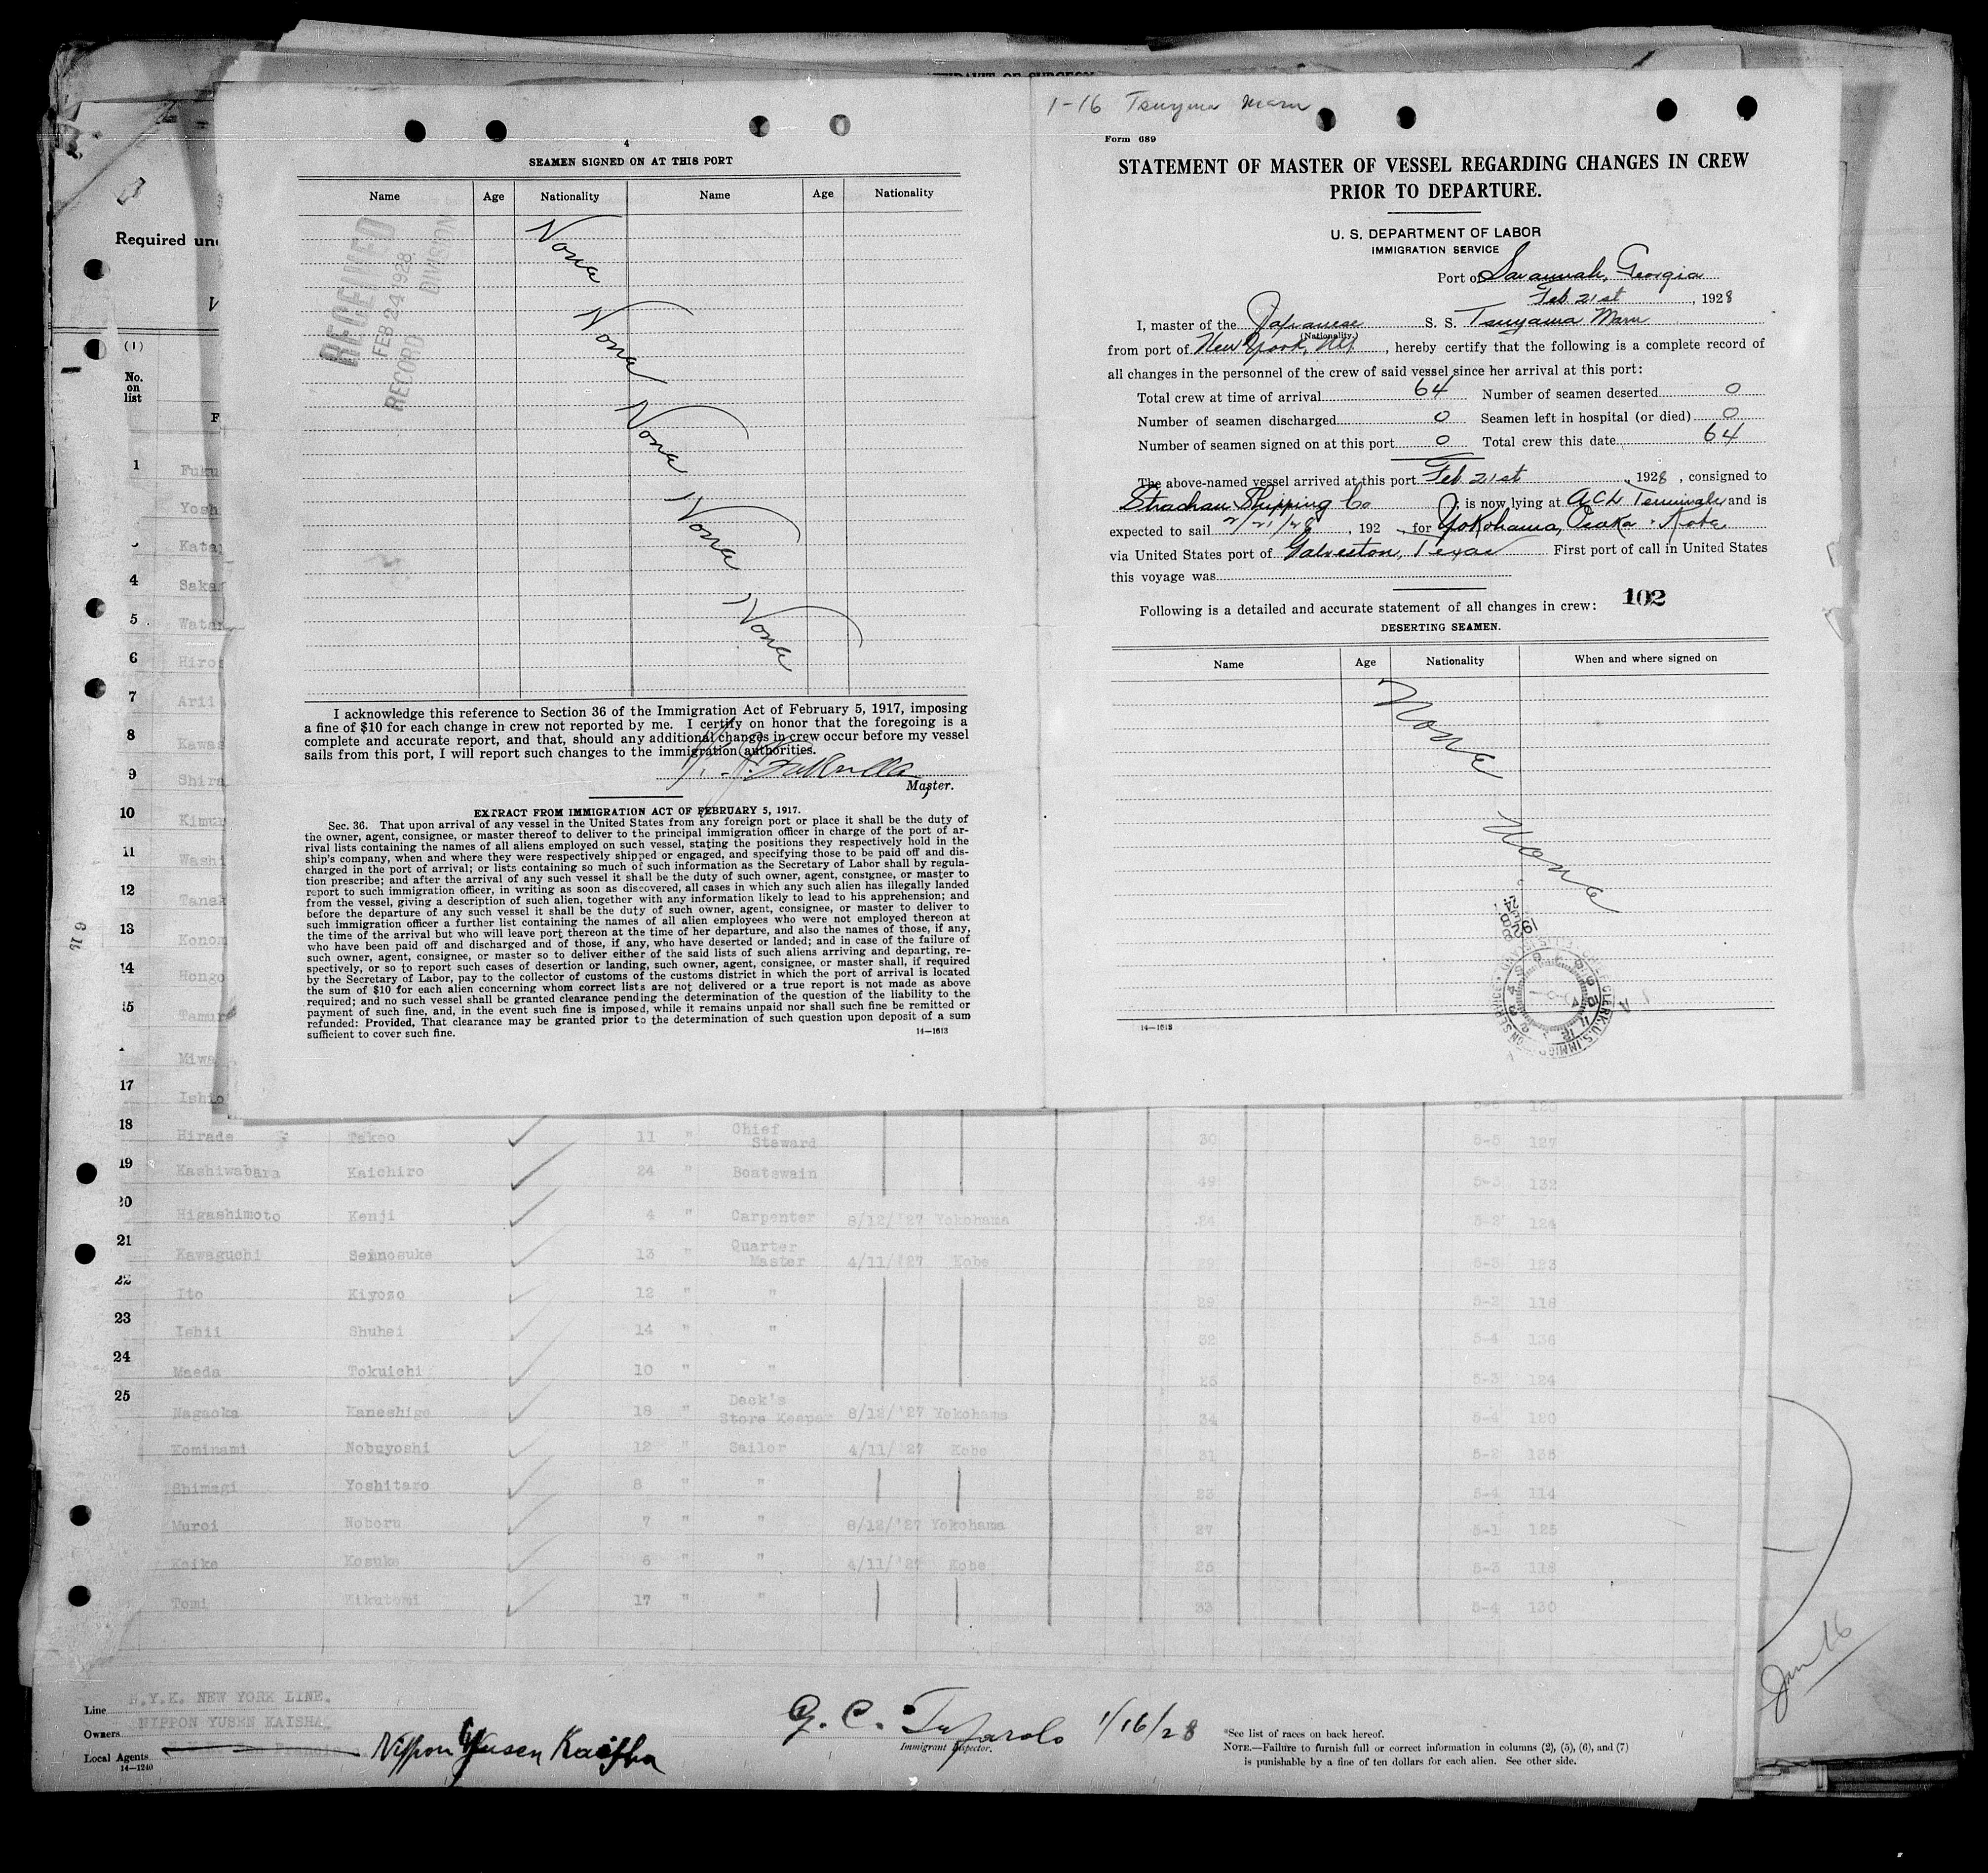 AFFIDAVIT OF SURGEON
4
SEAMEN SIGNED ON AT THIS PORT
Name Age Nationality Name Age Nationality
RECEIVED
FEB 24 1928
RECORD DIVISION
None
None
None
None
None
I acknowledge this reference to Section 36 of the Immigration Act of February 5, 1917, imposing
a fine of $10 for each change in crew not reported by me. I certify on honor that the foregoing is a
complete and accurate report, and that, should any additional changes in crew occur before my vessel
sails from this port, I will report such changes to the immigration authorities.
Master.
EXTRACT FROM IMMIGRATION ACT OF FEBRUARY 5, 1917.
Sec. 36. That upon arrival of any vessel in the United States from any foreign port or place it shall be the duty of
the owner, agent, consignee, or master thereof to deliver to the principal immigration officer in charge of the port of ar-
rival lists containing the names of all aliens employed on such vessel, stating the positions they respectively hold in the
ship's company, when and where they were respectively shipped or engaged, and specifying those to be paid off and dis-
charged in the port of arrival; or lists containing so much of such information as the Secretary of Labor shall by regula-
tion prescribe; and after the arrival of any such vessel it shall be the duty of such owner, agent, consignee, or master to
report to such immigration officer, in writing as soon as discovered, all cases in which any such alien has illegally landed
from the vessel, giving a description of such alien, together with any information likely to lead to his apprehension; and
before the departure of any such vessel it shall be the duty of such owner, agent, consignee, or master to deliver to
such immigration officer a further list containing the names of all alien employees who were not employed thereon at
the time of the arrival but who will leave port thereon at the time of her departure, and also the names of those, if any,
who have been paid off and discharged and of those, if any, who have deserted or landed; and in case of the failure of
such owner, agent, consignee, or master so to deliver either of the said lists of such aliens arriving and departing, re-
spectively, or so to report such cases of desertion or landing, such owner, agent, consignee, or master shall, if required
by the Secretary of Labor, pay to the collector of customs of the customs district in which the port of arrival is located
the sum of $10 for each alien concerning whom correct lists are not delivered or a true report is not made as above
required; and no such vessel shall be granted clearance pending the determination of the question of the liability to the
payment of such fine, and, in the event such fine is imposed, while it remains unpaid nor shall such fine be remitted or
refunded: Provided, That clearance may be granted prior to the determination of such question upon deposit of a sum
sufficient to cover such fine.
14—1613
1-16 Tsuyama Maru
Form 689
STATEMENT OF MASTER OF VESSEL REGARDING CHANGES IN CREW
PRIOR TO DEPARTURE.
U. S. DEPARTMENT OF LABOR
IMMIGRATION SERVICE
Port of Savannah, Georgia
Feb 21st, 1928
I, master of the Japanese S. S. Tsuyama Maru
(Nationality)
from port of New York, NY, hereby certify that the following is a complete record of
all changes in the personnel of the crew of said vessel since her arrival at this port:
Total crew at time of arrival 64 Number of seamen deserted 0
Number of seamen discharged 0 Seamen left in hospital (or died) 0
Number of seamen signed on at this port 0 Total crew this date 64
The above-named vessel arrived at this port Feb 21st, 1928, consigned to
Strachan Shipping Co, is now lying at ACL Terminals and is
expected to sail 2/21/28, 192 , for Yokohama, Osaka & Kobe
via United States port of Galveston, Texas First port of call in United States
this voyage was
Following is a detailed and accurate statement of all changes in crew: 102
DESERTING SEAMEN.
Name Age Nationality When and where signed on
None
None
FEB 24 1928
CLERK U.S. IMMIGRATION SERVICE
14—1613
Required und
V
(1)
No.
on
list
F
1 Fuku
Yosh
Kata
4 Saka
5 Watan
6 Hiros
7 Arii
8 Kawas
9 Shira
10 Kimur
11 Washi
12 Tanak
13 Konom
14 Hongo
15 Tamur
Miwa
17 Ishio 5-5 120
18 Hirade Takeo 11 " Chief Steward 30 5-5 127
19 Kashiwabara Kaichiro 24 " Boatswain 49 5-3 132
20 Higashimoto Kenji 4 " Carpenter 8/12/'27 Yokohama 24 5-2 124
21 Kawaguchi Seinosuke 13 " Quarter Master 4/11/'27 Kobe 29 5-3 123
22 Ito Kiyoso 12 " " 29 5-2 118
23 Ishii Shuhei 14 " " 32 5-4 136
24 Maeda Tokuichi 10 " " 25 5-3 124
25 Nagaoka Kaneshige 18 " Deck's Store Keeper 8/12/'27 Yokohama 34 5-4 120
Kominami Nobuyoshi 12 " Sailor 4/11/'27 Kobe 31 5-2 135
Shimagi Yoshitaro 8 " " 23 5-4 114
Muroi Noboru 7 " " 8/12/'27 Yokohama 27 5-1 125
Koike Kosuke 6 " " 4/11/'27 Kobe 25 5-3 118
Tomi Kikutomi 17 " " 33 5-4 130
Line N.Y.K. NEW YORK LINE.
Owners NIPPON YUSEN KAISHA
Local Agents Nippon Yusen Kaisha
14—1240
G. C. Tufarolo 1/16/28
Immigrant Inspector.
*See list of races on back hereof.
NOTE.—Failure to furnish full or correct information in columns (2), (5), (6), and (7)
is punishable by a fine of ten dollars for each alien. See other side.
Jan 16